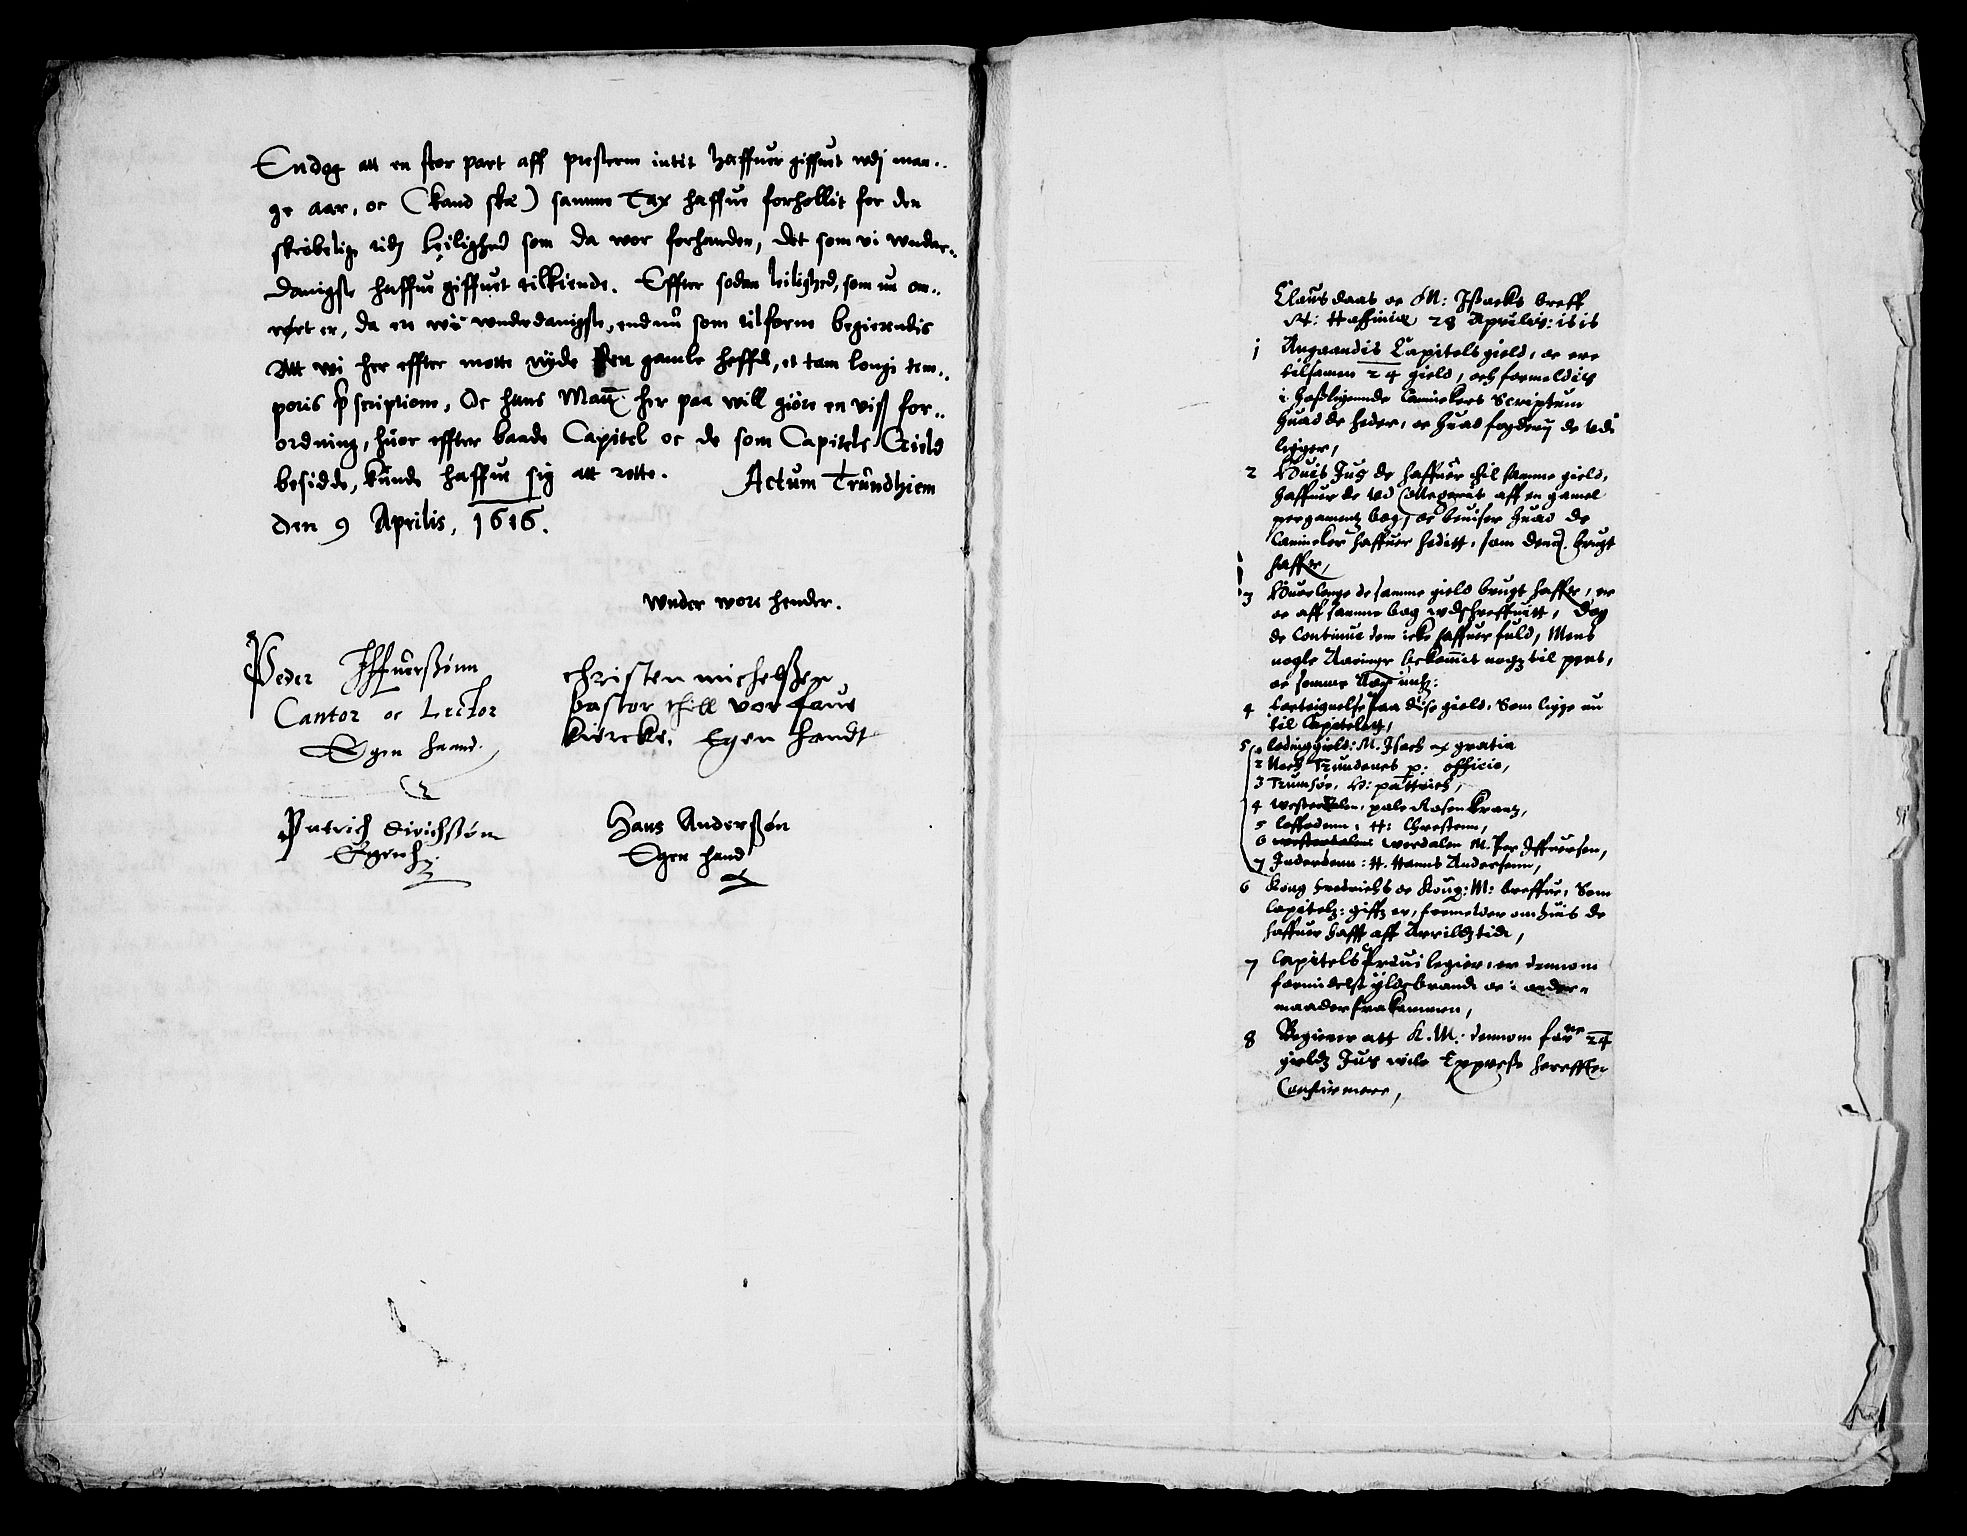 Endog att en stor part aff presterne intit haffuer giffuet wdj man..
ge aar, oc (kand skæ) samme Tax haffue forhollit for den
skrøbelig tidz leilighed som da wor forhanden, det som vi wnder..
danigste haffue giffuet tilkiende. Effter sodan leilighed, som nu om..
rørt er, da er wii wnderdanigste, endnu som tilforn begierendis
Att wi her effter motte nyde den gamle heffd, et tam longi tem..
poris pscriptione, Oc hans Maȳ. her paa will giøre en viss for..
ordning, huor effter baade Capitel oc de som Capitels Gield
besidde, kunde haffue sig att rette. Actum Trundhiem
den 9 Aprilis, 1616.
wnder wore hender.
Peder Iffuerssønn
Cantor oc Lector
Egen haand.
christen michelssen
pastor thill vor frue
kiercke, Egen handt
Patrich Dirichssøn
Egen h.
Hans Anderssøn
Egen hand
Claus daas oc M: Issacks breff
Haffniæ 28 Aprilis: 1616
1 Angaandis Capitels gield, oc ere
tilsamen 24 gield, och formeldis
i hossliggende Cannickers Scriptum
huad de heder, oc huad fogderij de vdi
ligger,
2 Huis Jus de haffuer thil samme gield,
haffuer de vd aff en gamel
pergamentz bog, oc beuiser huad de
Cannicker haffuer heditt, som dem brugt
haffr,
3 Huor lenge de samme gield brugt haffr, er
oc aff samme bog wdschreffuitt, Dog
de Continue dem icke haffuer fuld, Mens
nogle Aaringe bekommit nogz til pent,
oc somme Aar intz:
4 Forteignelse paa disse gield, Som ligge nu
til Capitelet,
5 1 lodinggield: M. Isach ex gratia
2 Noch Trundenes p: officio,
3 Trumsøe, H: pattrich,
4 Westeralen, pale Rosenkrantz,
5 loffodenn: H: Chrestenn,
6 Werdalen M. Per Iffuersen,
7 Inderøenn: H. Hanns Andersenn,
6 Kong fredrichs oc Kong: M: breffue, Som
Capitelz: giffz er, formelder om huis de
haffuer hafft aff Arrildz tide,
7 Capitels Priuilegier, er dennom
formidelst ildebrande oc i andre
maader frakommen,
8 Begierer att K. M. dennom forne 24
gieldz Jus wile Expresse hereffter
Confirmere,